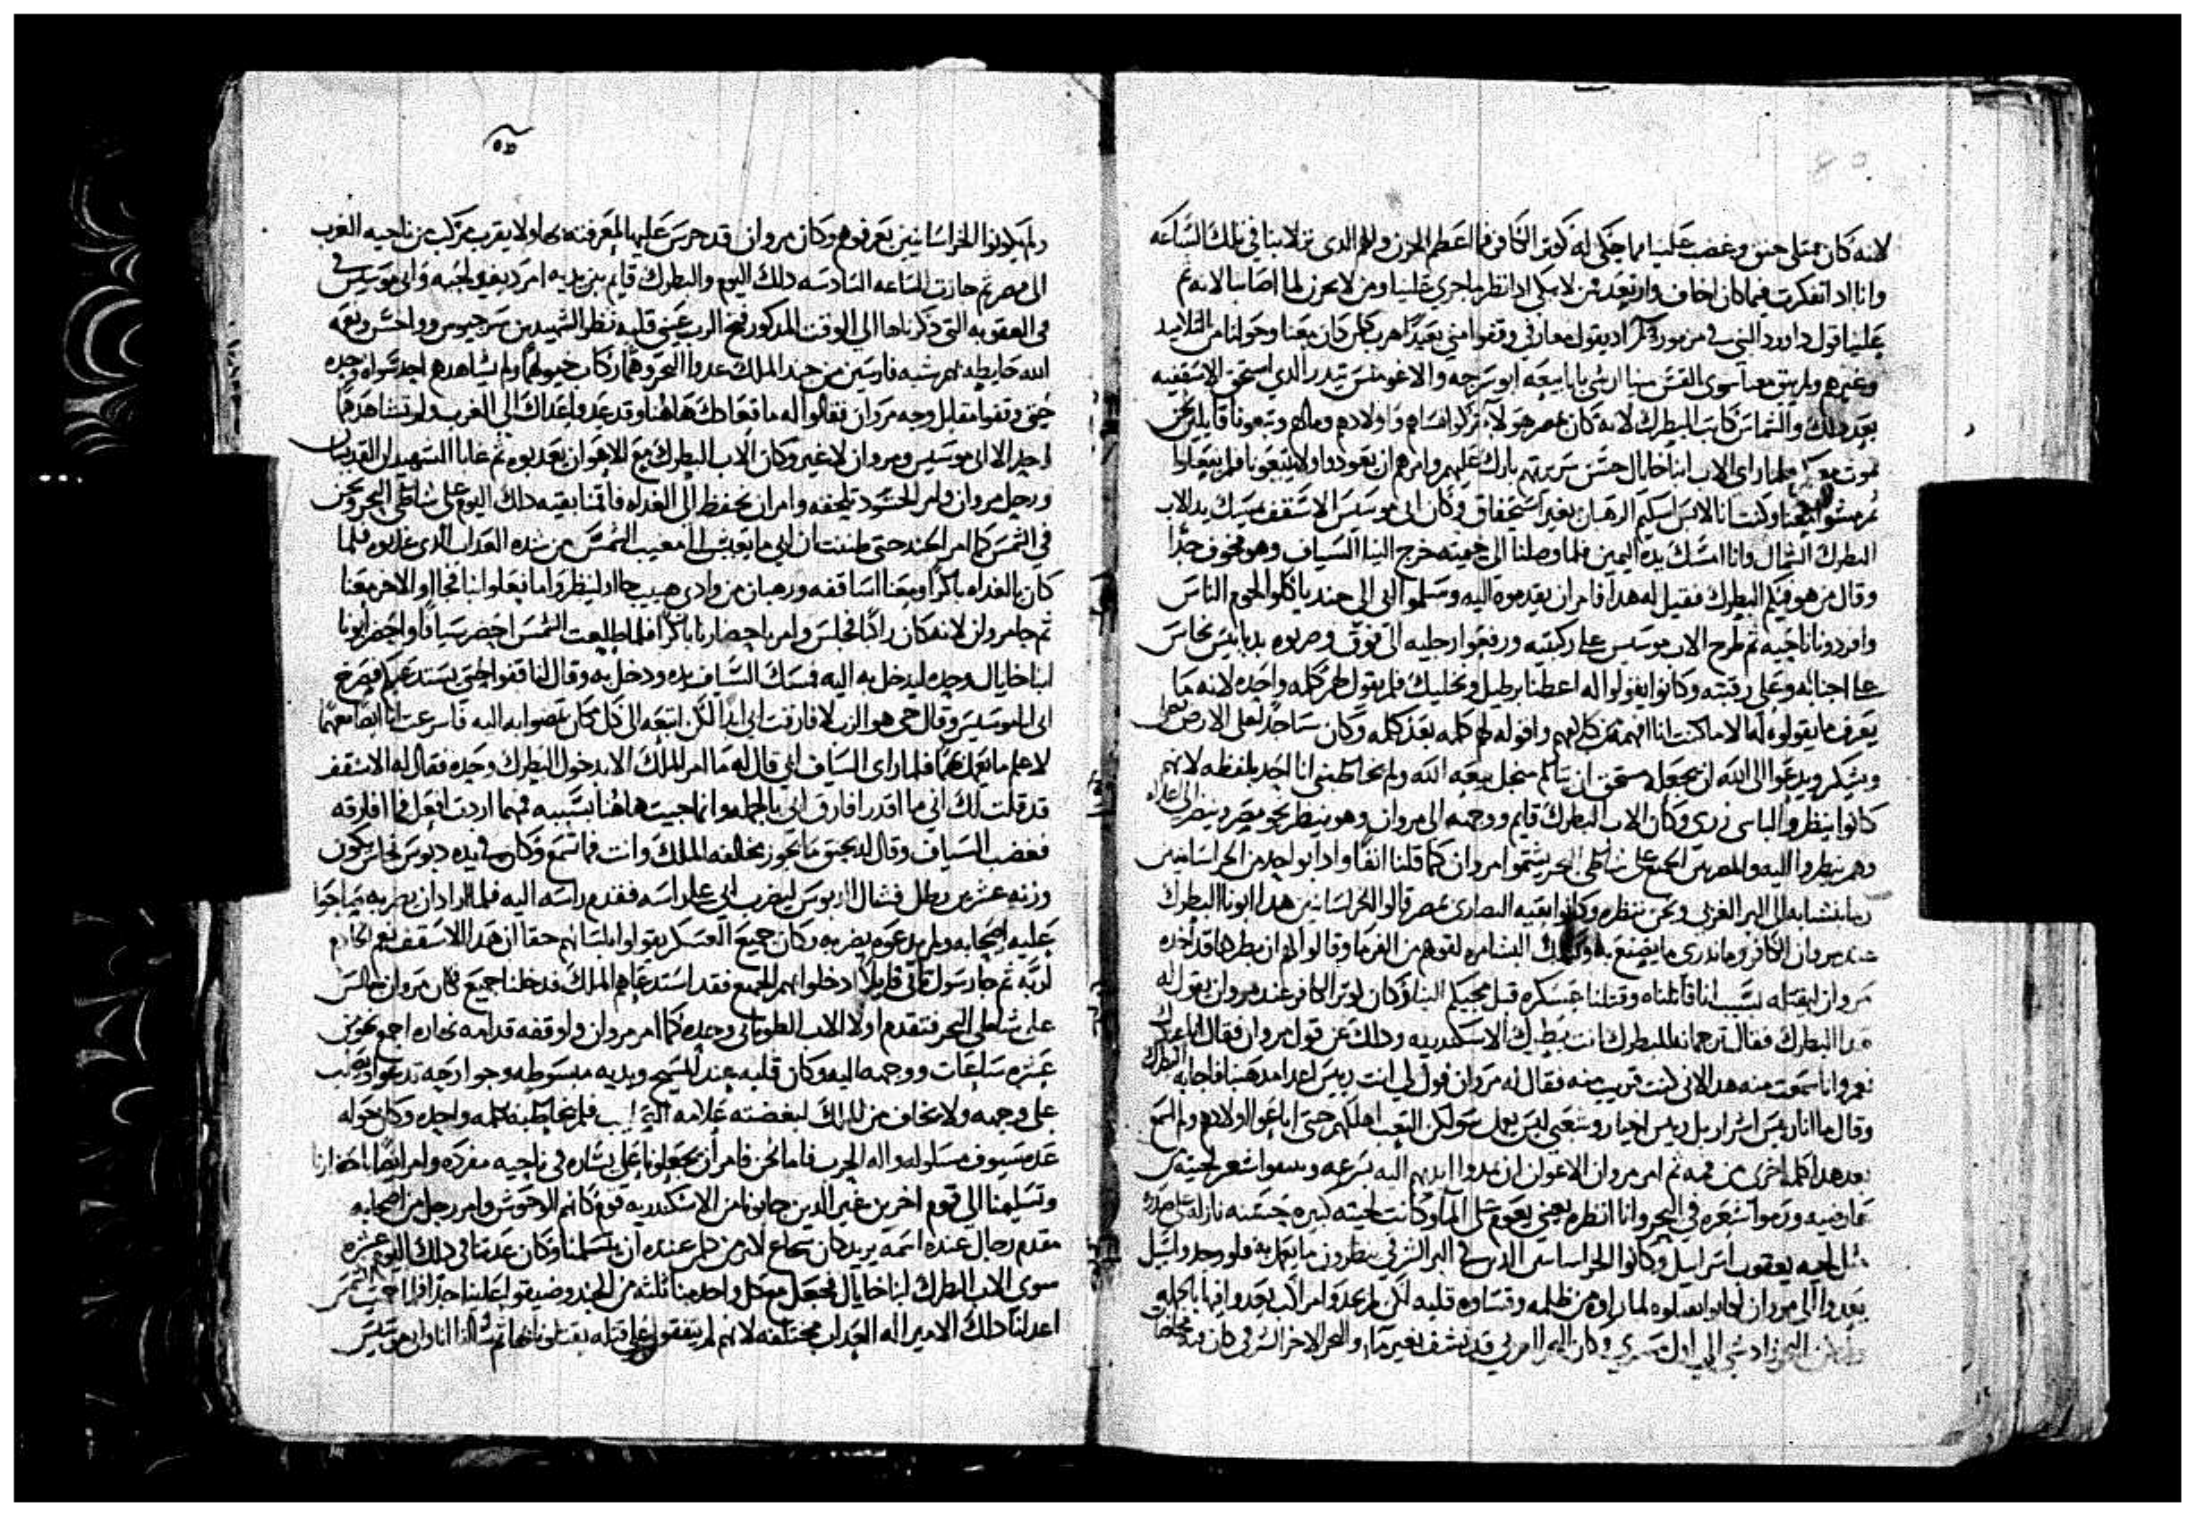 لانه كان ممتلى حنق وغضب علينا مما حكى له كوتر الكافر فما اعظم الحزن والهم الدى نزلا بنا في تلك الساعه
وانا اد اتفكرت فيما كان اخاف وارتعد من لا يبكي ادا نظر ما جري علينا ومن لا يحزن لما اصابنا لانه تم
علينا قول داوود النبي في مزمور اد يقول معارفي وقفوا مني بعيدا هرب كلمن كان معنا وحولنا من التلاميد
وغيرهم ولم يبق معنا سوى القس مينا بيعه ابو سرجه والاغومنس تيدر الدي استحق الاسقفيه
بعد دلك والشماس كاتب البطرك لانه كان بمصر هولاء تركوا نفسهم واولادهم ومالهم وتبعونا قايلين نحن
نموت معكم فلما راى الاب انبا خايال حسن سريرتهم بارك عليهم وامرهم ان يعودوا ولا يتبعونا فلم يتبعانا
ثم مشوا معنا وكنت انا لابس اسكيم الرهبان بغير استحقاق وكان ابى موسيس الاسقف مسك يد الاب
البطرك الشمال وانا امسك يده اليمين فلما وصلنا الى خيمته خرج الينا السياف وهو مخوف جدا
وقال من هو فيكم البطرك فقيل له هدا فامر ان يقدموه اليه وسلموا ابي الى جند ياكلوا لحوم الناس
وافردونا ناحيه ثم طرح الاب موسيس على ركبتيه ورفعوا رجليه الى فوق وضربوه بدبابيس نحاس
على اجنابه وعلى رقبته وكانوا يقولوا له اعطنا برطيل ونخليك فلم يقول لهم كلمه واحده لانه ما
يعرف ما يقولوه له الا ما كنت انا افهمه من كلامهم واقوله لهم كلمه بعد كلمه وكان ساجد على الارض
ويشكر ويدعوا الى الله ان يجعله مستحق ان يتالم من اجل بيعه الله ولم يخاطبني انا احد بلفظه لانهم
كانوا ينظروا لباسى زرى وكان الاب البطرك قايم ووجهه الى مروان وهو ينظر نحو مصر وينظر الى اعداه
وهم ينظروا اليه والمصريين الجميع على شاطى البحر يشتموا مروان كما قلنا انفا وادا بواحد من الخراسانيين
رما بنشابه الى البر الغربي ونحن ننظره وكانوا بقيه النصارى بمصر قالوا للخراسانيين هدا ابونا البطرك
عند مروان الكافر وما ندرى ما يصنع به وكدلك البشامره لقوهم من الفرما وقالوا لهم ان بطركنا قد اخده
مروان ليقتله بسبب اننا قاتلناه وقتلنا عسكره قبل مجيكم الينا وكان كوتر الكافر عند مروان يقول له
هدا البطرك فقال ترجمانه للبطرك انت بطرك الاسكندريه ودلك عن قول مروان فقال انا عبدك
نعم وانا سمعت منه هدا لانى كنت قريب منه فقال له مروان قول لي انت ريس اعدا مدهبنا فاجابه البطرك
وقال ما انا ريس اشرار بل ريس اخيار وشعبي ليس يعمل سو لكن التعب اهلكهم حتى اباعوا اولادهم ولم اسمع
بعد هدا كلمه اخرى من فمه ثم امر مروان الاعوان ان يمدوا ايديهم اليه بسرعه وينتفوا شعر لحيته من
عارضيه ورموا شعره في البحر وانا انظره يعني يعوم على الما وكانت لحيته كبيره حسنه نازله على صدره
مثل لحيه يعقوب اسراييل وكانوا الخراسانيين الدين في البر الشرقي ينظرون ما يعمل به فلو وجدوا سبيل
يعدوا الى مروان لكانوا يقتلوه لما راوه من ظلمه وقساوه قلبه لكن لم يجدوا مراكب يعدوا فيها بالجمله
البحر الغربي قد نشف بغير ماء والبحر الاخر الشرقي كان فيه مخاضات
ولم يكونوا الخراسانيين يعرفوهم وكان مروان قد حرس عليها لمعرفته بها ولا يقرب مركب من ناحيه الغرب
الى مصر ثم جازت الساعه السادسه دلك اليوم والبطرك قايم بين يديه امر د بغير لحيه وابى موسيس في
في العقوبه التي دكرناها الى الوقت المدكور فتح الرب عيني قلبه نظر الشهيدين سرجيوس وواخس وبيعه
الله حايطه بهم شبه فارسين من جند الملك عدوا البحر وهما ركاب خيولهما ولم يشاهدهم احد سواه وحده
حتى وقفوا مقابل وجه مروان فقالوا له ما قعادك هاهنا وقد عدوا اعداك الى الغرب ولم يشاهدهما
احد الا ابى موسيس ومروان لا غير وكان الاب البطرك مع الاهوان يعدبوه ثم غابا الشهيدان القديسان
ورحل مروان وامر الجنود تلحقه وامر ان يحتفظ الى الغداه فاقمنا بقيه دلك اليوم على شاطى البحر ونحن
في الشمس كما امر الجند حتى ظننت ان ابي ما يعيش الى مغيب الشمس من شده العداب الدى عدبوه فلما
كان بالغداه باكر اومعنا اساقفه ورهبان من وادى هبيب جاا ولينظروا ما يفعلوا بنا فجاا والاخر معنا
ثم جا مروان لانه كان راكبا فجلس وامر باحضارنا باكرا فلما طلعت الشمس احضر سيافا واحضر ابونا
انبا خايال وحده ليدخل به اليه فمسك السياف يده ودخل به وقال لنا قفوا حتى يستدعيكم فصرخ
ابى انبا موسيس وقال حى هو الرب لا فارقت ابي ابدا لكن اتبعه الى كل مكان تمضوا به اليه فاسرعت انا ايضا معهما
لاعلم ما يعمل بهما فلما راى السياف ابي قال له ما امر الملك الا بدخول البطرك وحده فقال له الاسقف
قد قلت لك اني ما اقدر افارق ابى بالجمله وانما جيت هاهنا بسببه فمهما اردت افعل فما افارقه
فغضب السياف وقال له بحنق ما تجوز مخالفه الملك وانت فما تسمع وكان في يده دبوس نحاس يكون
وزنه عشرين رطل فشال الدبوس ليضرب ابي على راسه فقدم راسه اليه فلما اراد ان يضربه صاحوا
عليه اصحابه ولم يدعوه يضربه وكان جميع العسكر يقولوا بلسانهم حقا ان هدا الاسقف نعم الخادم
لربه ثم جا رسول تاني قايلا ادخلوا بهم الجميع فقد استدعاهم الملك فدخلنا جميع وكان مروان جالس
على شاطي البحر فتقدم اولا الاب الطوباني وحده كما امر مروان واوقفه قدامه نهاره اجمع نحو من
عشره ساعات ووجهه اليه وكان قلبه عند المسيح ويديه مبسوطه وجوارحه تدعوا ويصلب
على وجهه ولا يخاف من الملك لبغضته علامه الصليب فلم يخاطبه بكلمه واحده وكان حوله
عده سيوف مسلوله واله الحرب فاما نحن فامر ان يجعلونا على يساره في ناحيه مفرده وامر ايضا باحضارنا
وتسليمنا الى قوم اخرين غير الدين جابونا من الاسكندريه قوم كانهم الوحوش وامر رجل من اصحابه
مقدم رجال عنده اسمه يزيد كان شجاع لابد من كل عنده ان يتسلمنا وكان عدتنا في دلك اليوم عشره
سوى الاب البطرك انبا خايال فجعل مع كل واحد منا ثلثه من الجند وضيقوا علينا جدا
اعد لنا دلك الامير اله العداب مختلفه لانهم لم يتفقوا على قتله يقتلونا بها ثم